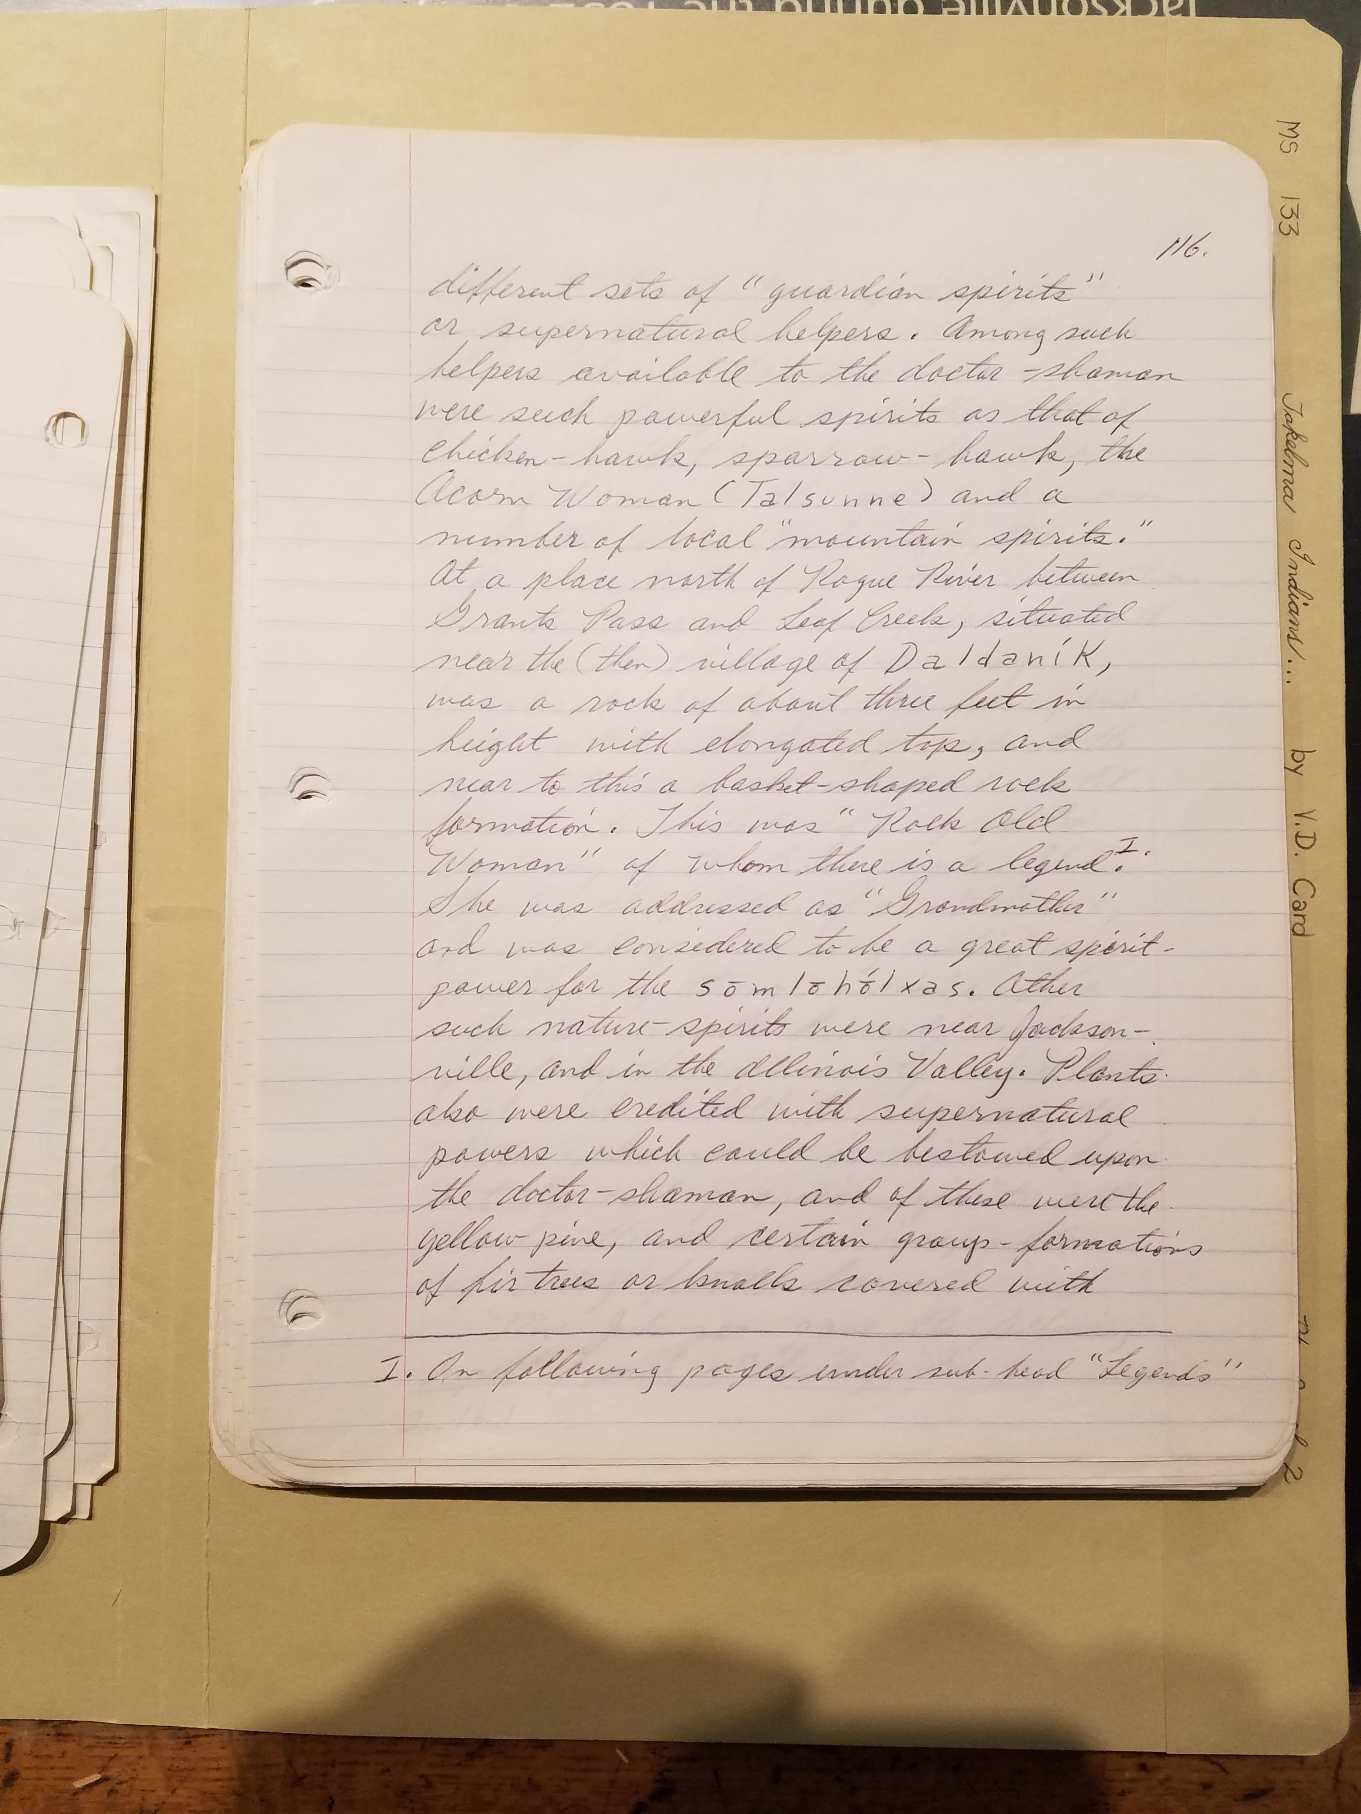 Jacksonville during the 1852
116.
different sets of "guardian spirits"
or supernatural helpers. Among such
helpers available to the doctor-shaman
were such powerful spirits as that of
chicken-hawk, sparrow-hawk, the
Acorn Woman (Talsunne) and a
number of local "mountain spirits."
At a place north of Rogue River between
Grants Pass and Leaf Creek, situated
near the (then) village of Daldaník,
was a rock of about three feet in
height with elongated top, and
near to this a basket-shaped rock
formation. This was "Rock Old
Woman" of whom there is a legend. I.
She was addressed as "Grandmother"
and was considered to be a great spirit-
power for the sōmlōhṓlxas. Other
such nature-spirits were near Jackson-
ville, and in the Illinois Valley. Plants
also were credited with supernatural
powers which could be bestowed upon
the doctor-shaman, and of these were the
yellow pine, and certain group-formations
of fir trees or knolls covered with
I. On following pages under sub-head "Legends"
MS 133 Takelma Indians... by V.D. Card
2